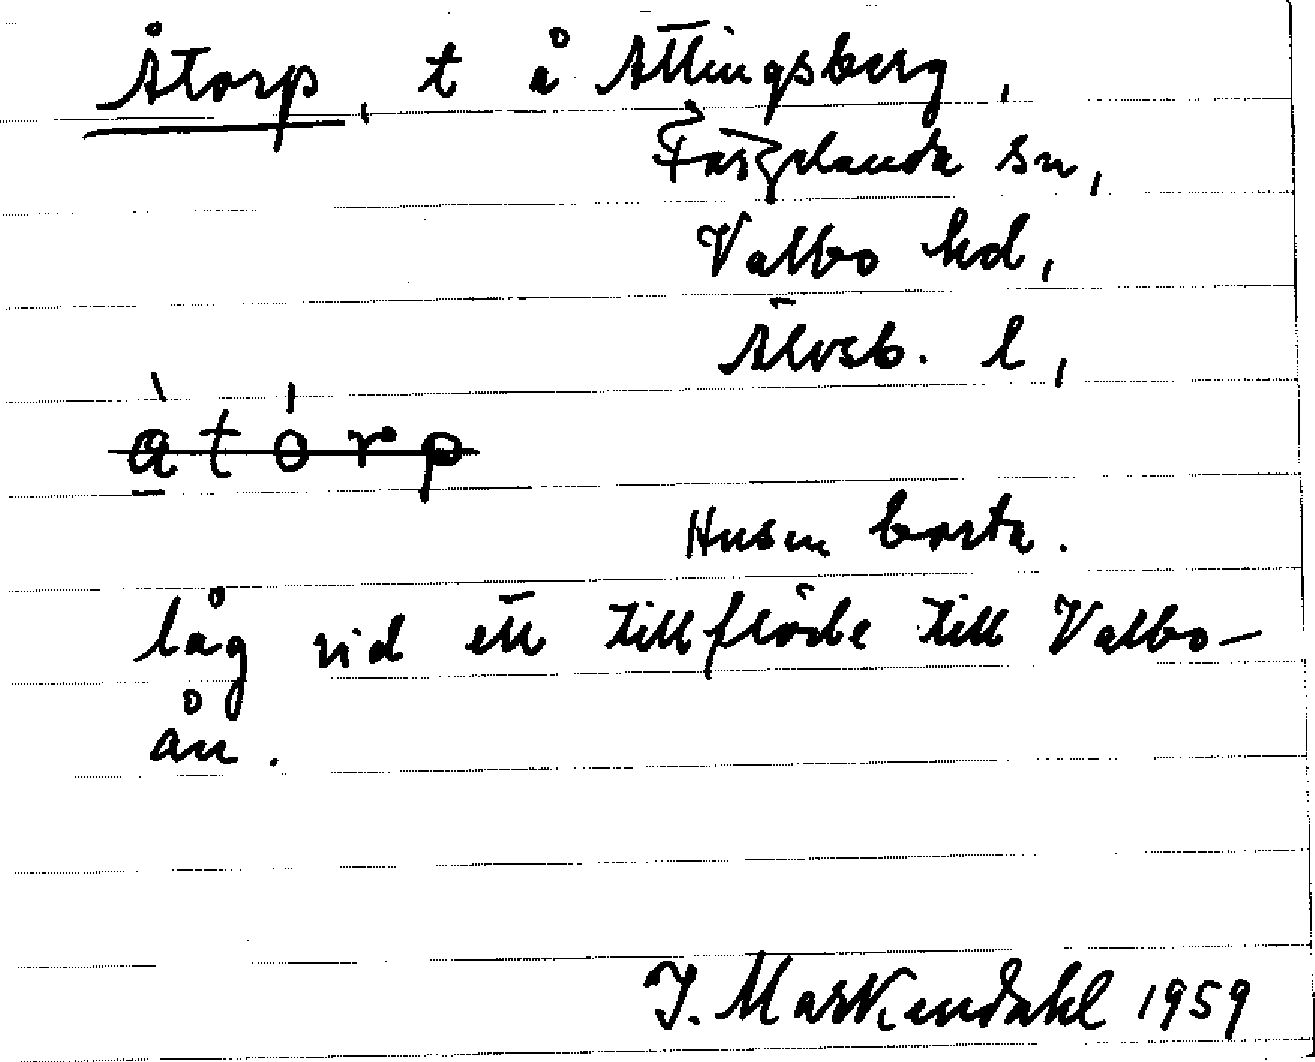 Åtorp, t å Ättingsberg,
Färgelanda sn,
Valbo hd,
Älvsb. l,
Husen borta.
låg vid ett tillflöde till Valbo-
ån.
J. Markendahl 1959